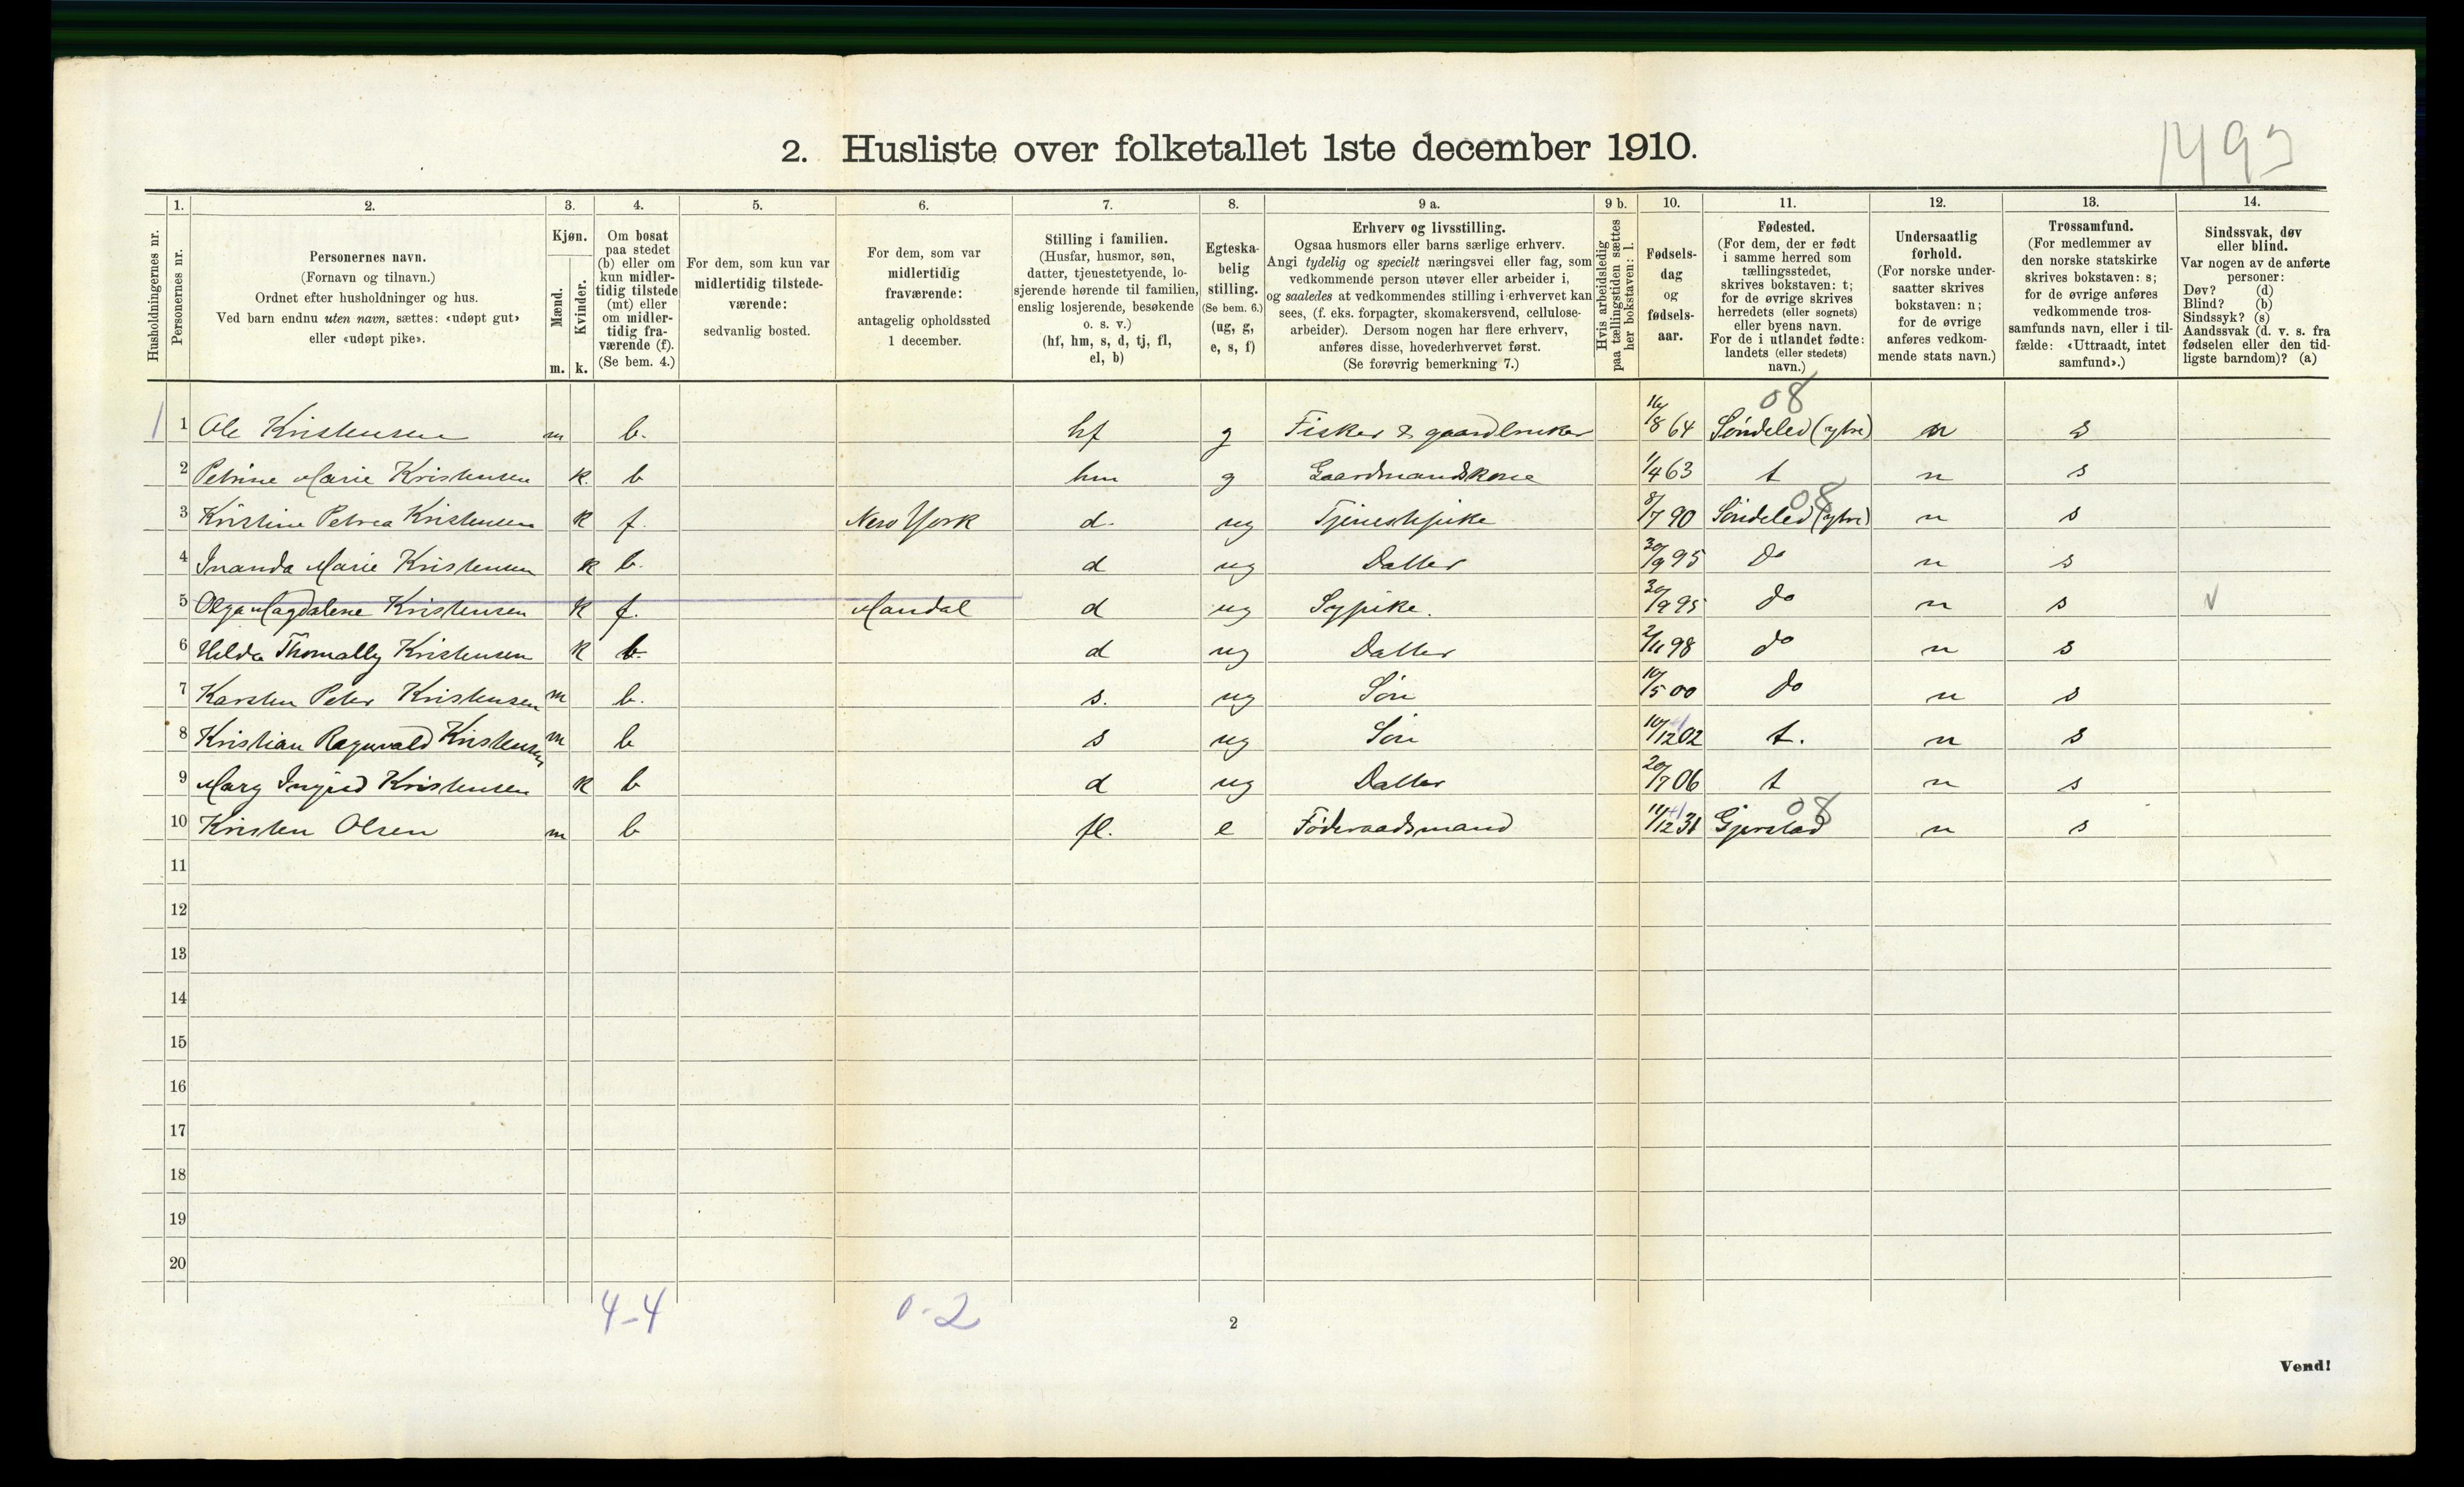 2. Husliste over folketallet 1ste december 1910.
1493
1. 2. 3. 4. 5. 6. 7. 8. 9 a. 9 b. 10. 11. 12. 13. 14.
Husholdningernes nr.
Personernes nr.
Personernes navn.
(Fornavn og tilnavn.)
Ordnet efter husholdninger og hus.
Ved barn endnu uten navn, sættes: «udøpt gut»
eller «udøpt pike».
Kjøn.
Mænd.
Kvinder.
m. k.
Om bosat
paa stedet
(b) eller om
kun midler-
tidig tilstede
(mt) eller
om midler-
tidig fra-
værende (f).
(Se bem. 4.)
For dem, som kun var
midlertidig tilstede-
værende:
sedvanlig bosted.
For dem, som var
midlertidig
fraværende:
antagelig opholdssted
1 december.
Stilling i familien.
(Husfar, husmor, søn,
datter, tjenestetyende, lo-
sjerende hørende til familien,
enslig losjerende, besøkende
o. s. v.)
(hf, hm, s, d, tj, fl,
el, b)
Egteska-
belig
stilling.
(Se bem. 6.)
(ug, g,
e, s, f)
Erhverv og livsstilling.
Ogsaa husmors eller barns særlige erhverv.
Angi tydelig og specielt næringsvei eller fag, som
vedkommende person utøver eller arbeider i,
og saaledes at vedkommendes stilling i erhvervet kan
sees, (f. eks. forpagter, skomakersvend, cellulose-
arbeider). Dersom nogen har flere erhverv,
anføres disse, hovederhvervet først.
(Se forøvrig bemerkning 7.)
Hvis arbeidsledig
paa tællingstiden sættes
her bokstaven: l.
Fødsels-
dag
og
fødsels-
aar.
Fødested.
(For dem, der er født
i samme herred som
tællingsstedet,
skrives bokstaven: t;
for de øvrige skrives
herredets (eller sognets)
eller byens navn.
For de i utlandet fødte:
landets (eller stedets)
navn.)
Undersaatlig
forhold.
(For norske under-
saatter skrives
bokstaven: n;
for de øvrige
anføres vedkom-
mende stats navn.)
Trossamfund.
(For medlemmer av
den norske statskirke
skrives bokstaven: s;
for de øvrige anføres
vedkommende tros-
samfunds navn, eller i til-
fælde: «Uttraadt, intet
samfund».)
Sindssvak, døv
eller blind.
Var nogen av de anførte
personer:
Døv? (d)
Blind? (b)
Sindssyk? (s)
Aandssvak (d. v. s. fra
fødselen eller den tid-
ligste barndom)? (a)
08
1 1 Ole Kristensen m b. hf g Fisker & gaardbruker 16/8 64 Søndeled (ytre) n s
2 Petrine Marie Kristensen k. b hm g Gaardmandskone 1/4 63 t n s
08
3 Kristine Petrea Kristensen k f. New York d. ug Tjenestpike 8/7 90 Søndeled (ytre) n s
4 Inanda Marie Kristensen k b. d ug Datter 30/9 95 do n s
5 Olga Magdalene Kristensen k f. Mandal d ug Sypike. 30/9 95 do n s v
6 Hilda Thomally Kristensen k b. d ug Datter 2/11 98 do n s
7 Karsten Peter Kristensen m b. s. ug Søn 10/5 00 do n s
8 Kristian Ragnvald Kristensen m b s ug Søn 10/12 02 t. n s
9 Mary Ingrid Kristensen k b d ug Datter 20/7 06 t n s
08
10 Kristen Olsen m b fl. e Føderaadsmand 11/12 31 Gjerstad n s
11
12
13
14
15
16
17
18
19
20
4-4 0-2
2
Vend!